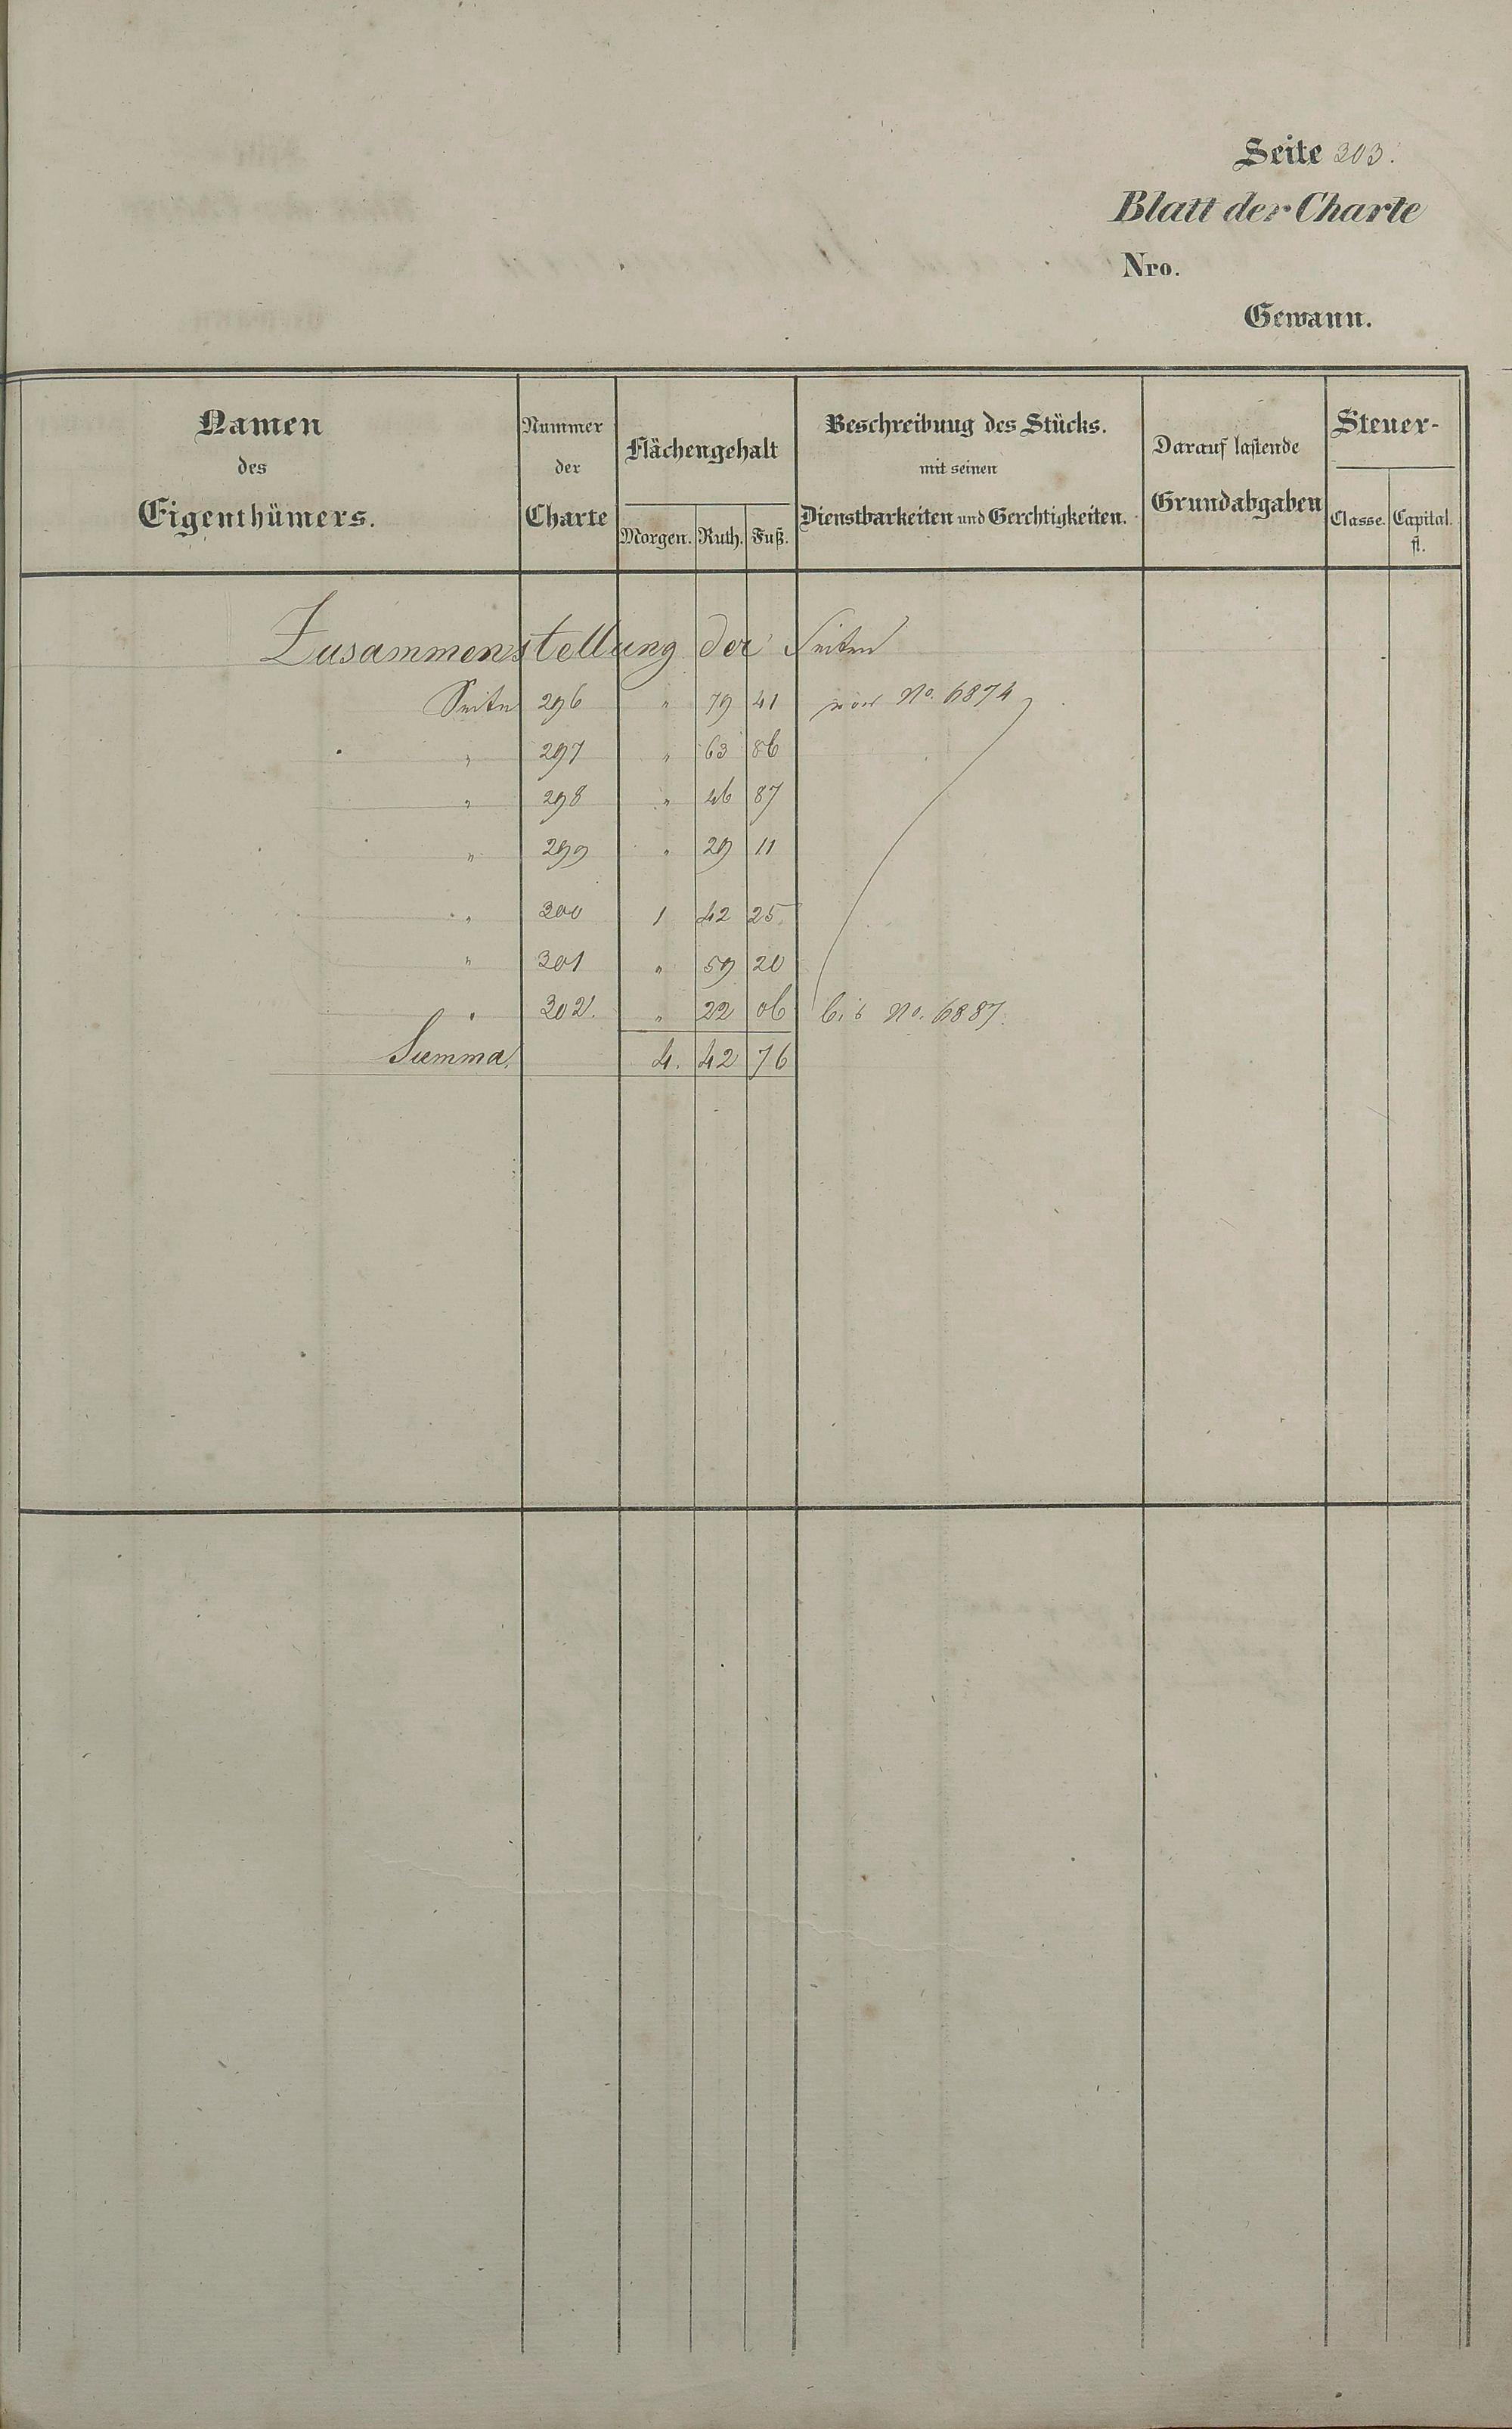 Seite 303.
Blatt der Charte
Nro.
Gewann.
Namen des Eigenthümers.
Nummer der Charte
Flächengehalt
Morgen. Ruth. Fuß.
Beschreibung des Stücks.
mit seinen
Dienstbarkeiten und Gerchtigkeiten.
Darauf lastende
Grundabgaben
Steuer-
Classe. Capital.
fl.
Zusammenstellung der Seiten
Seite 296 " 79 41 von No. 6874
" 297 " 63 86
" 298 " 46 87
" 299 " 29 11
" 300 1 42 25
" 301 " 59 20
" 302. " 22 06 bis No. 6887.
Summa. 4. 42 76